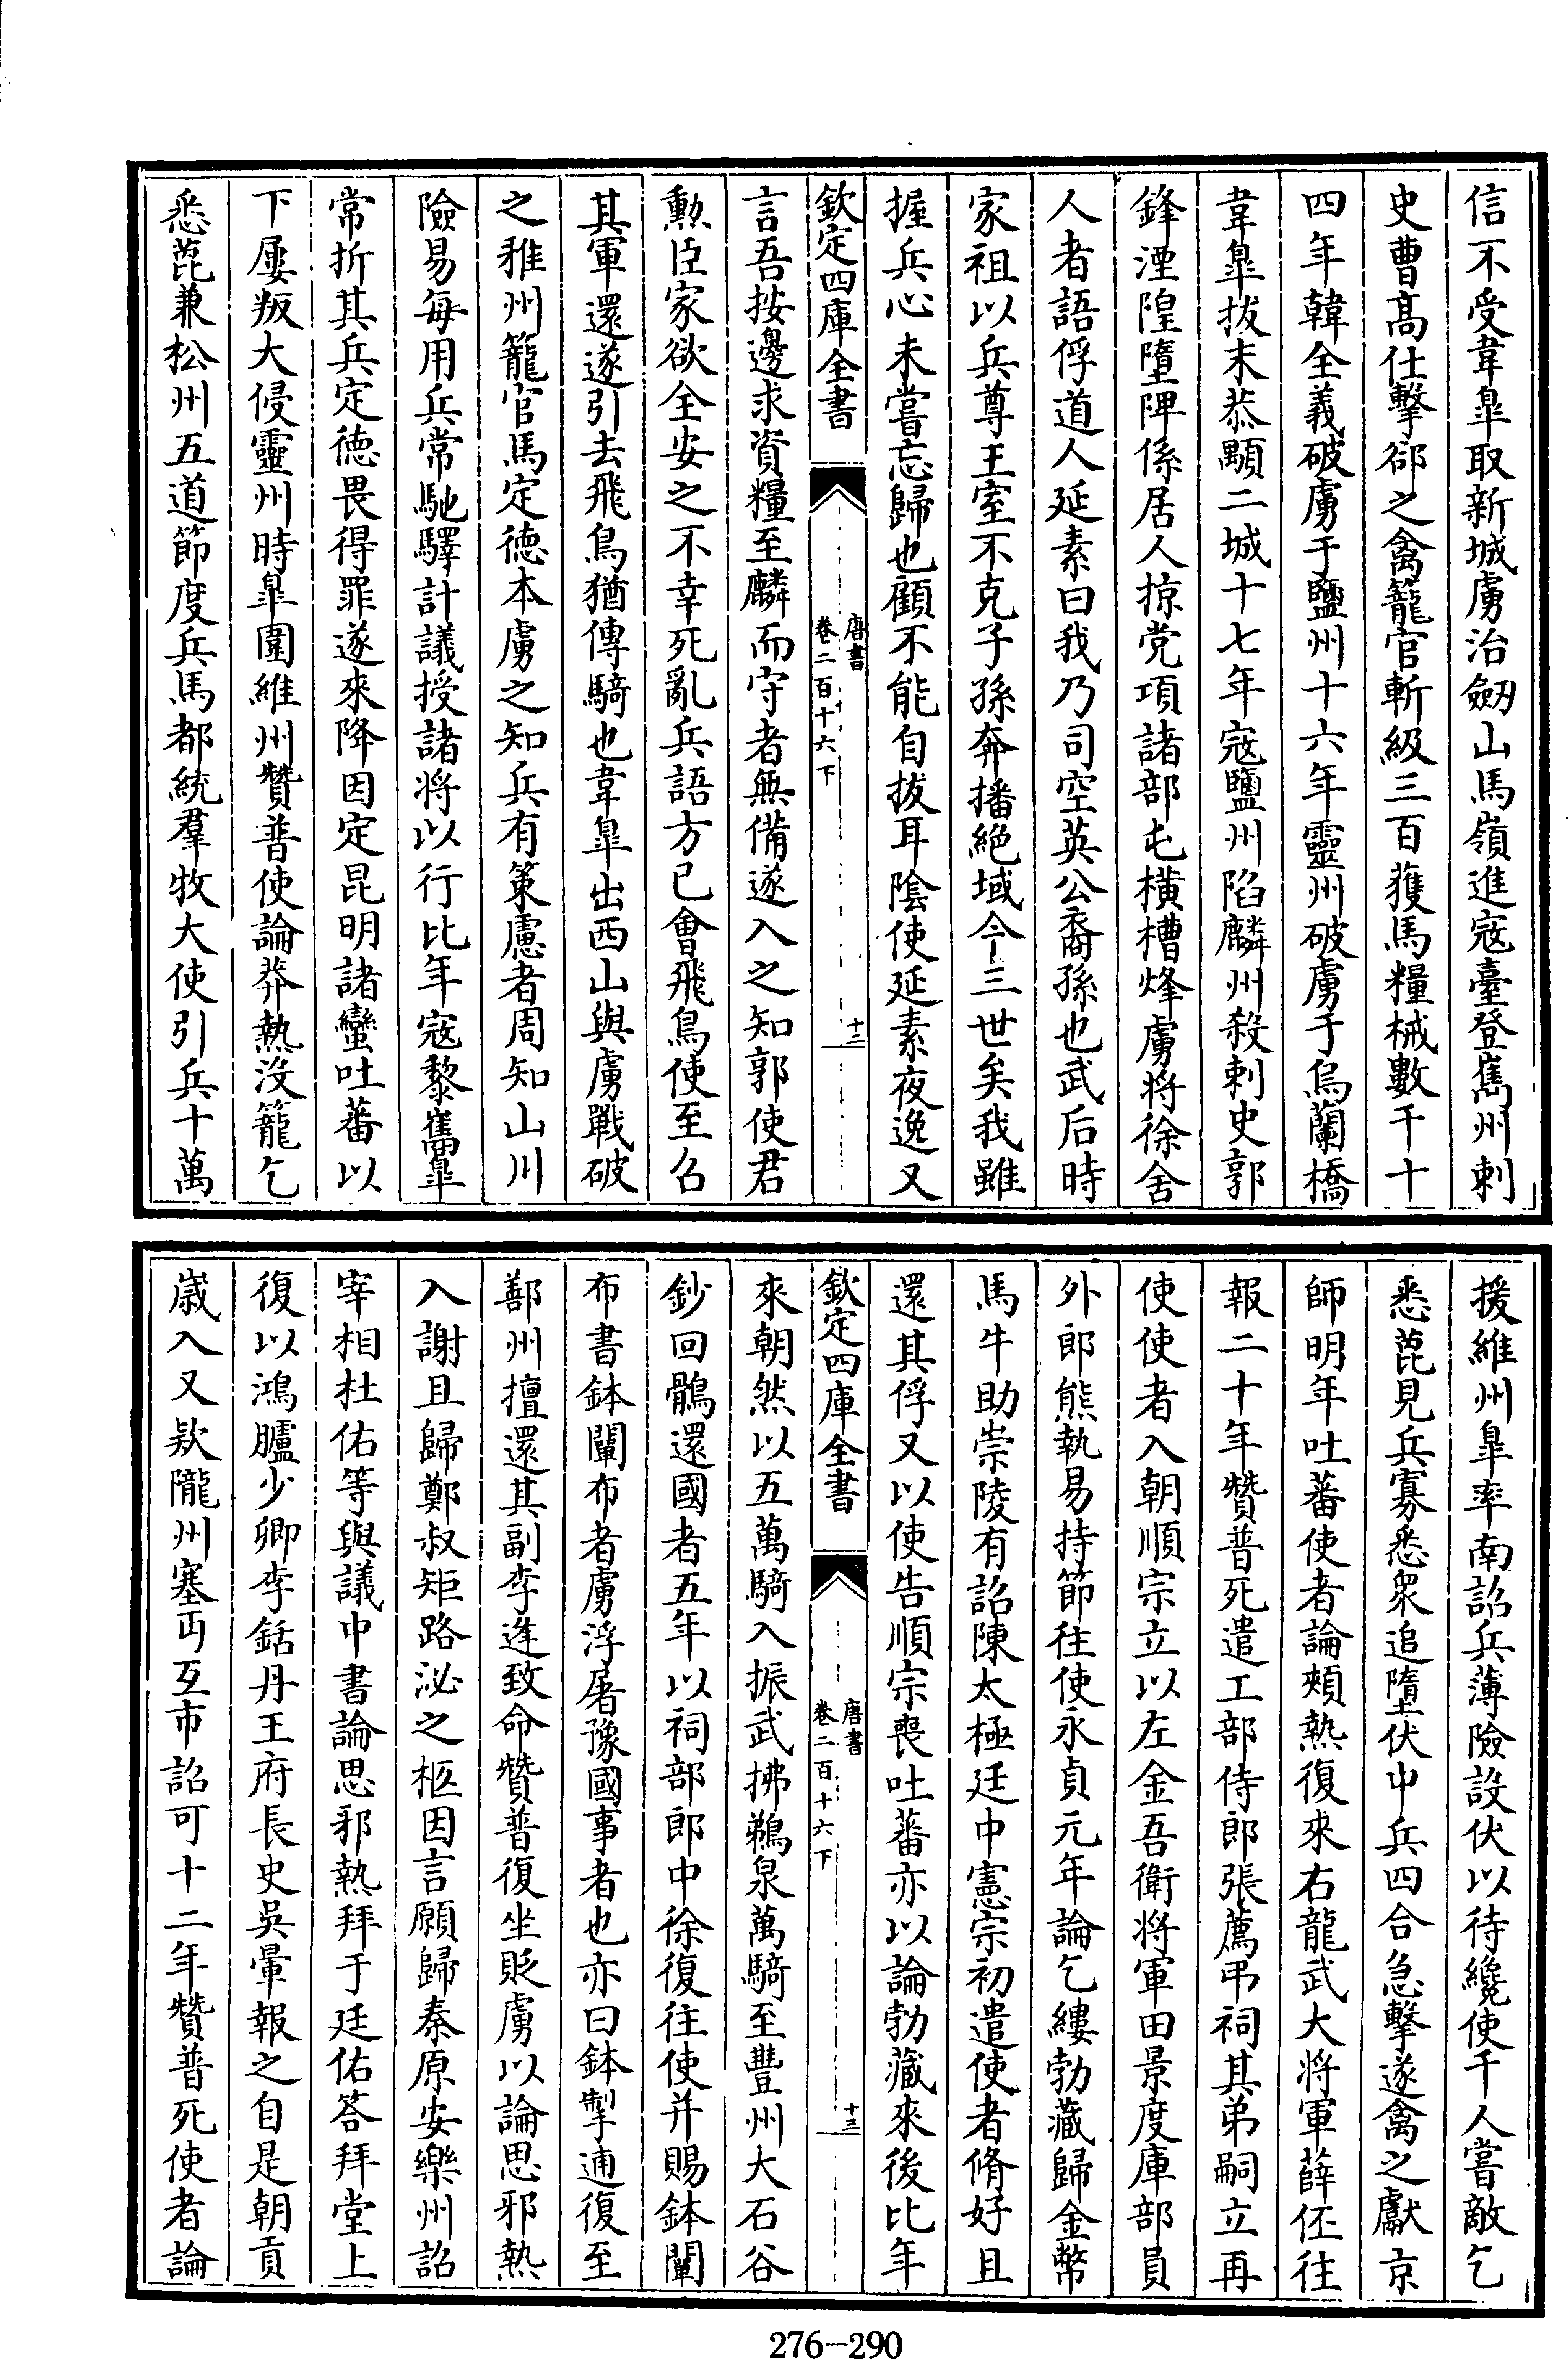 信不受韋臯取新城虜治劒山馬嶺進寇臺登嶲州刺
史曹髙仕擊郤之禽籠官斬級三百獲馬糧械數千十
四年韓全義破虜于鹽州十六年靈州破虜于烏蘭橋
韋臯拔末恭顒二城十七年寇鹽州陷麟州殺刺史郭
鋒湮隍墮陴係居人掠党項諸部屯横槽烽虜將徐舍
人者語俘道人延素曰我乃司空英公裔孫也武后時
家祖以兵尊王室不克子孫奔播絶域今三世矣我雖
握兵心未嘗忘歸也顧不能自拔耳陰使延素夜逸又
欽定四庫全書
唐書
卷二百十六下
十二
言吾按邊求資糧至麟而守者無備遂入之知郭使君
勲臣家欲全安之不幸死亂兵語方已會飛鳥使至召
其軍還遂引去飛鳥猶傳騎也韋臯出西山與虜戰破
之雅州籠官馬定徳本虜之知兵有策慮者周知山川
險易每用兵常馳驛計議授諸將以行比年寇黎嶲臯
常折其兵定徳畏得罪遂來降因定昆明諸蠻吐蕃以
下屢叛大侵靈州時臯圍維州贊普使論莽熱没籠乞
悉蓖兼松州五道節度兵馬都統羣牧大使引兵十萬
援維州臯率南詔兵薄險設伏以待纔使千人嘗敵乞
悉蓖見兵寡悉衆追墮伏中兵四合急擊遂禽之獻京
師明年吐蕃使者論頰熱復來右龍武大將軍薛伾往
報二十年贊普死遣工部侍郎張薦弔祠其弟嗣立再
使使者入朝順宗立以左金吾衛將軍田景度庫部員
外郎熊執易持節往使永貞元年論乞縷勃藏歸金幣
馬牛助崇陵有詔陳太極廷中憲宗初遣使者脩好且
還其俘又以使告順宗喪吐蕃亦以論勃藏來後比年
欽定四庫全書
唐書
卷二百十六下
十三
來朝然以五萬騎入振武拂鵜泉萬騎至豐州大石谷
鈔回鶻還國者五年以祠部郎中徐復往使并賜鉢闡
布書鉢闡布者虜浮屠豫國事者也亦曰鉢掣逋復至
鄯州擅還其副李逢致命贊普復坐貶虜以論思邪熱
入謝且歸鄭叔矩路泌之柩因言願歸秦原安樂州詔
宰相杜佑等與議中書論思邪熱拜于廷佑答拜堂上
復以鴻臚少卿李銛丹王府長史吳暈報之自是朝貢
歳入又欵隴州塞丐互市詔可十二年贊普死使者論
276-290